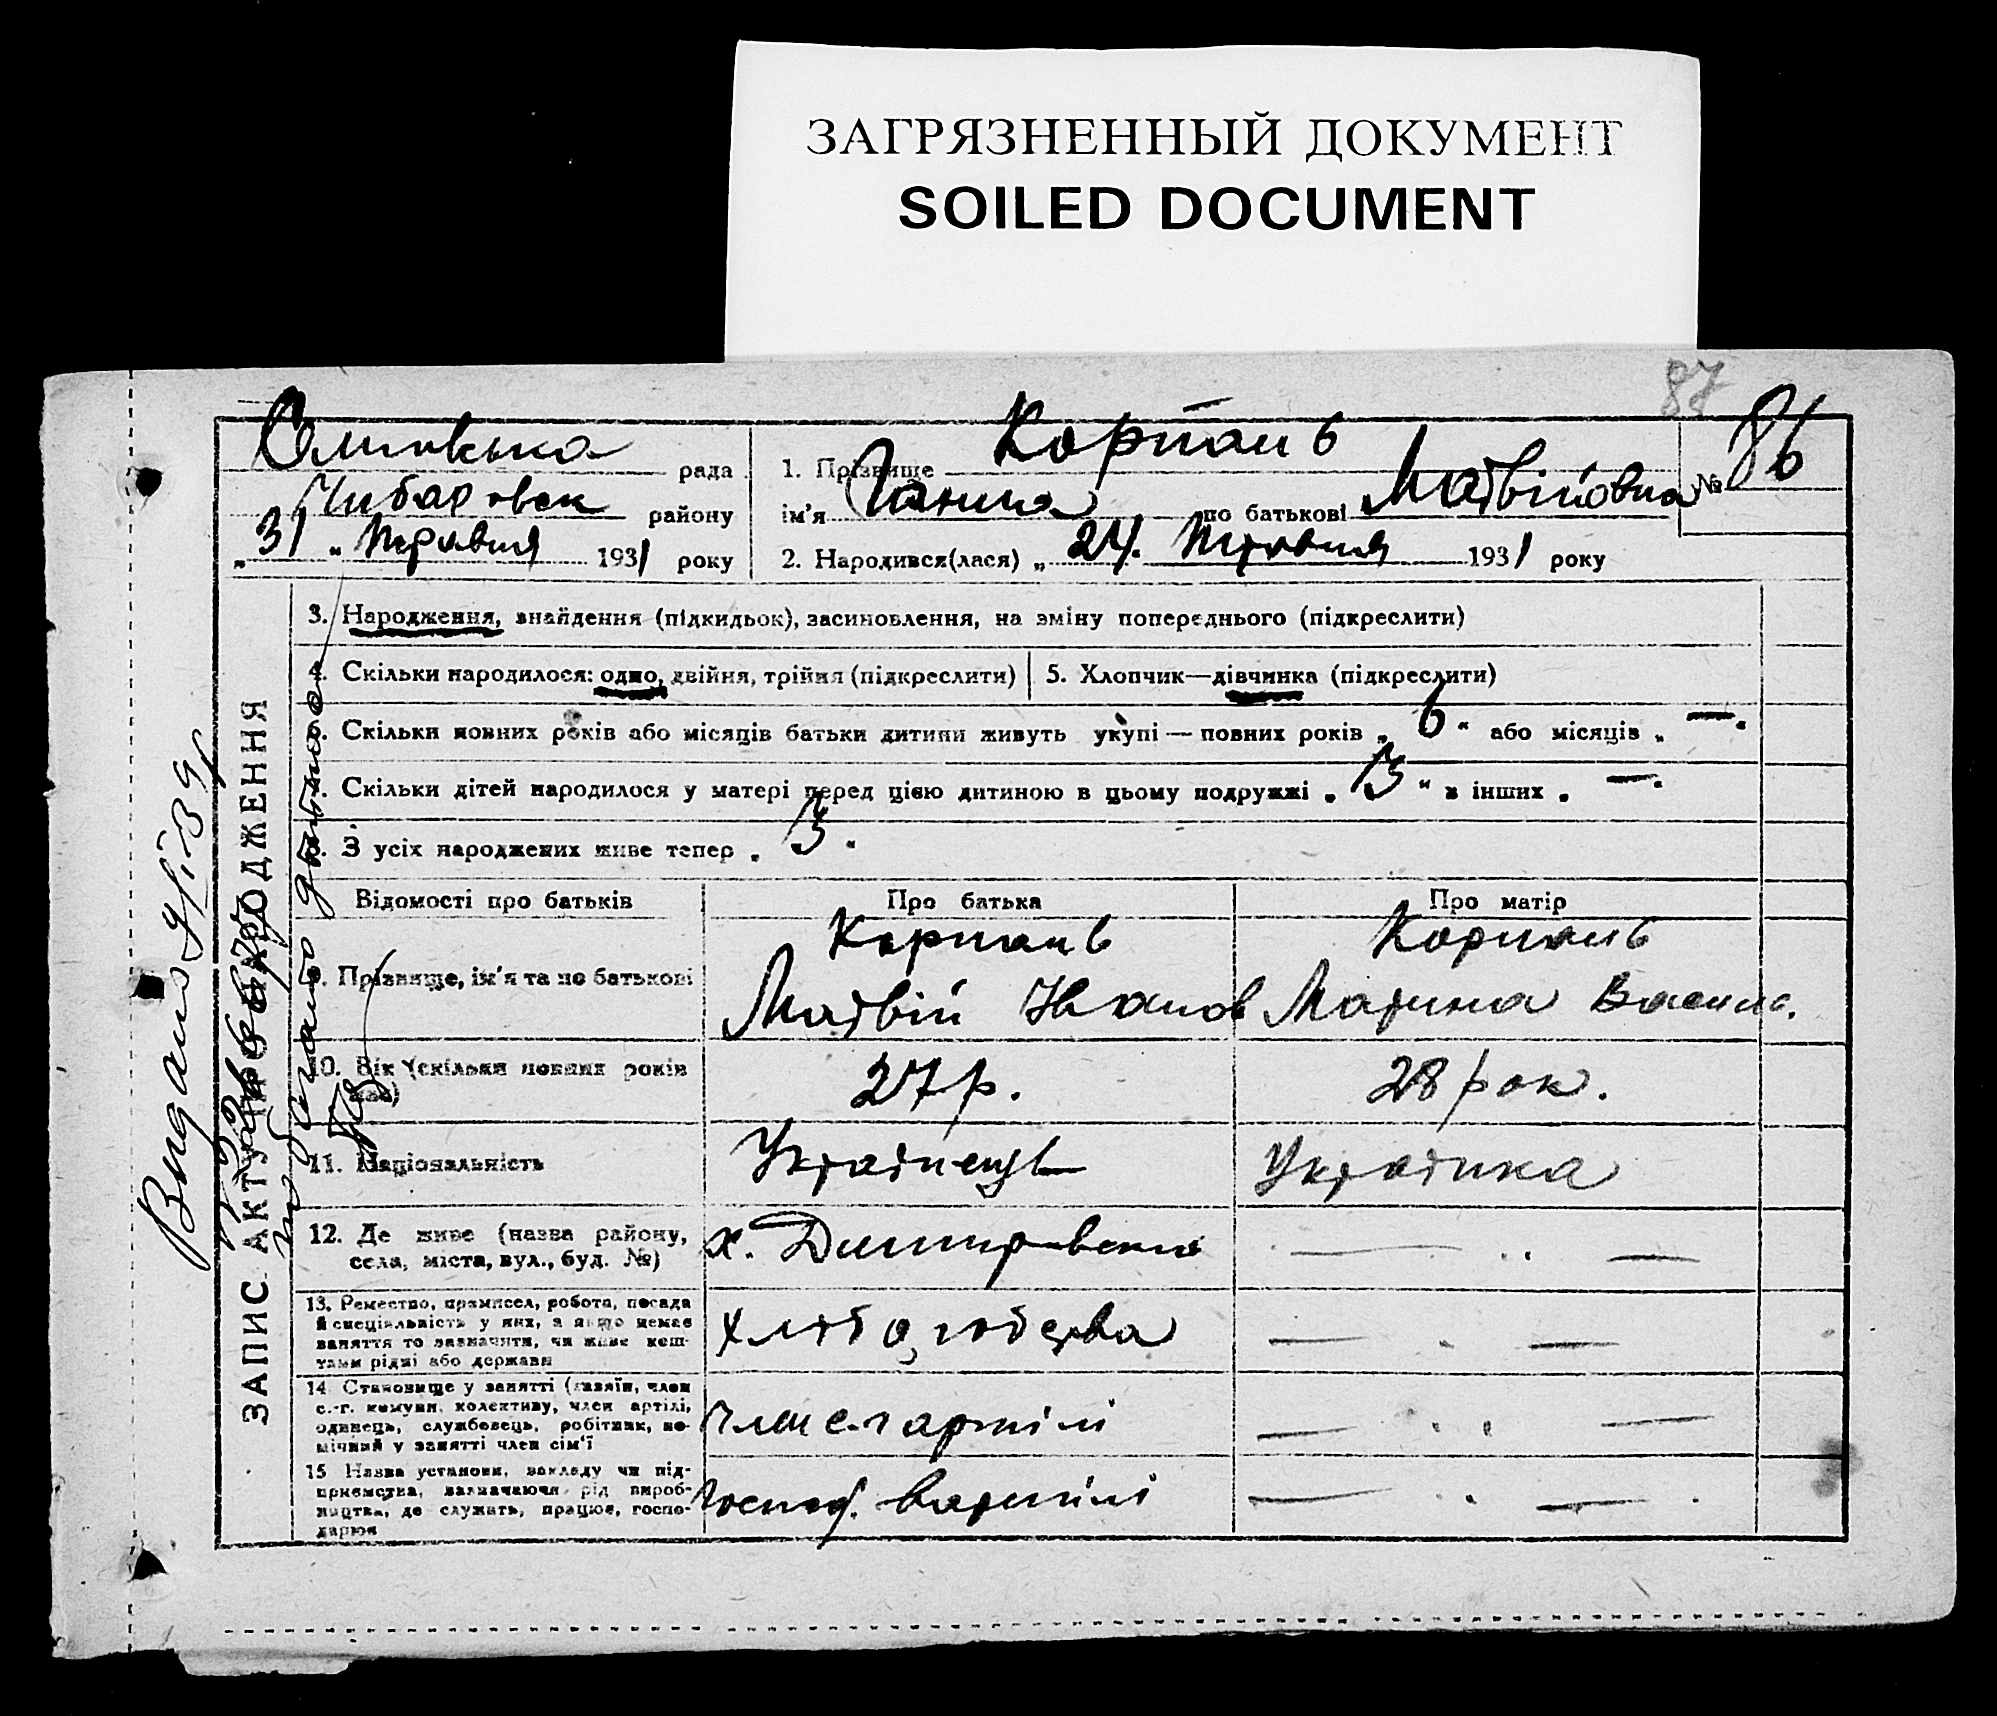 ЗАГРЯЗНЕННЫЙ ДОКУМЕНТ
SOILED DOCUMENT
87
рада
району
„31“ Травня 1931 року
1. Прізвище Корпань
ім'я Ганна по батькові Матвійовна
№ 86
2. Народився(лася) „24. Травня 1931 року
ЗАПИС АКТУ ПРО НАРОДЖЕННЯ
Видано 9/І-39р
3. Народження, знайдення (підкидьок), засиновлення, на зміну попереднього (підкреслити)
4. Скільки народилося: одно, двійня, трійня (підкреслити)
5. Хлопчик—дівчинка (підкреслити)
. Скільки повних років або місяців батьки дитини живуть укупі — повних років „ 6 “ або місяців „ — .
. Скільки дітей народилося у матері перед цією дитиною в цьому подружжі „ 3 “ в інших „ — .
. З усіх народжених живе тепер „ 3 “
Відомості про батьків
Про батька
Про матір
. Прізвище, ім'я та по батькові
Корпань
Матвій Іванов
Корпань
Марина Васил.
10. Вік (скільки повних років має)
27 р.
28 рок.
11. Національність
Українець
Українка
12. Де живе (назва району,
села, міста, вул., буд. №)
х.
— „ —
13. Ремество, промисел, робота, посада
й спеціальність у них, а якщо немає
заняття то зазначити, чи живе кош-
тами рідні або держави
Хліборобства
— „ —
14. Становище у занятті (хазяїн, член
с.-г. комуни, колективу, член артілі,
одинець, службовець, робітник, по-
мічний у занятті член сім'ї
член с.-г артілі
— „ —
15. Назва установи, закладу чи під-
приємства, зазначаючи рід вироб-
ництва, де служить, працює, госпо-
дарює
господ. в артілі
— „ —